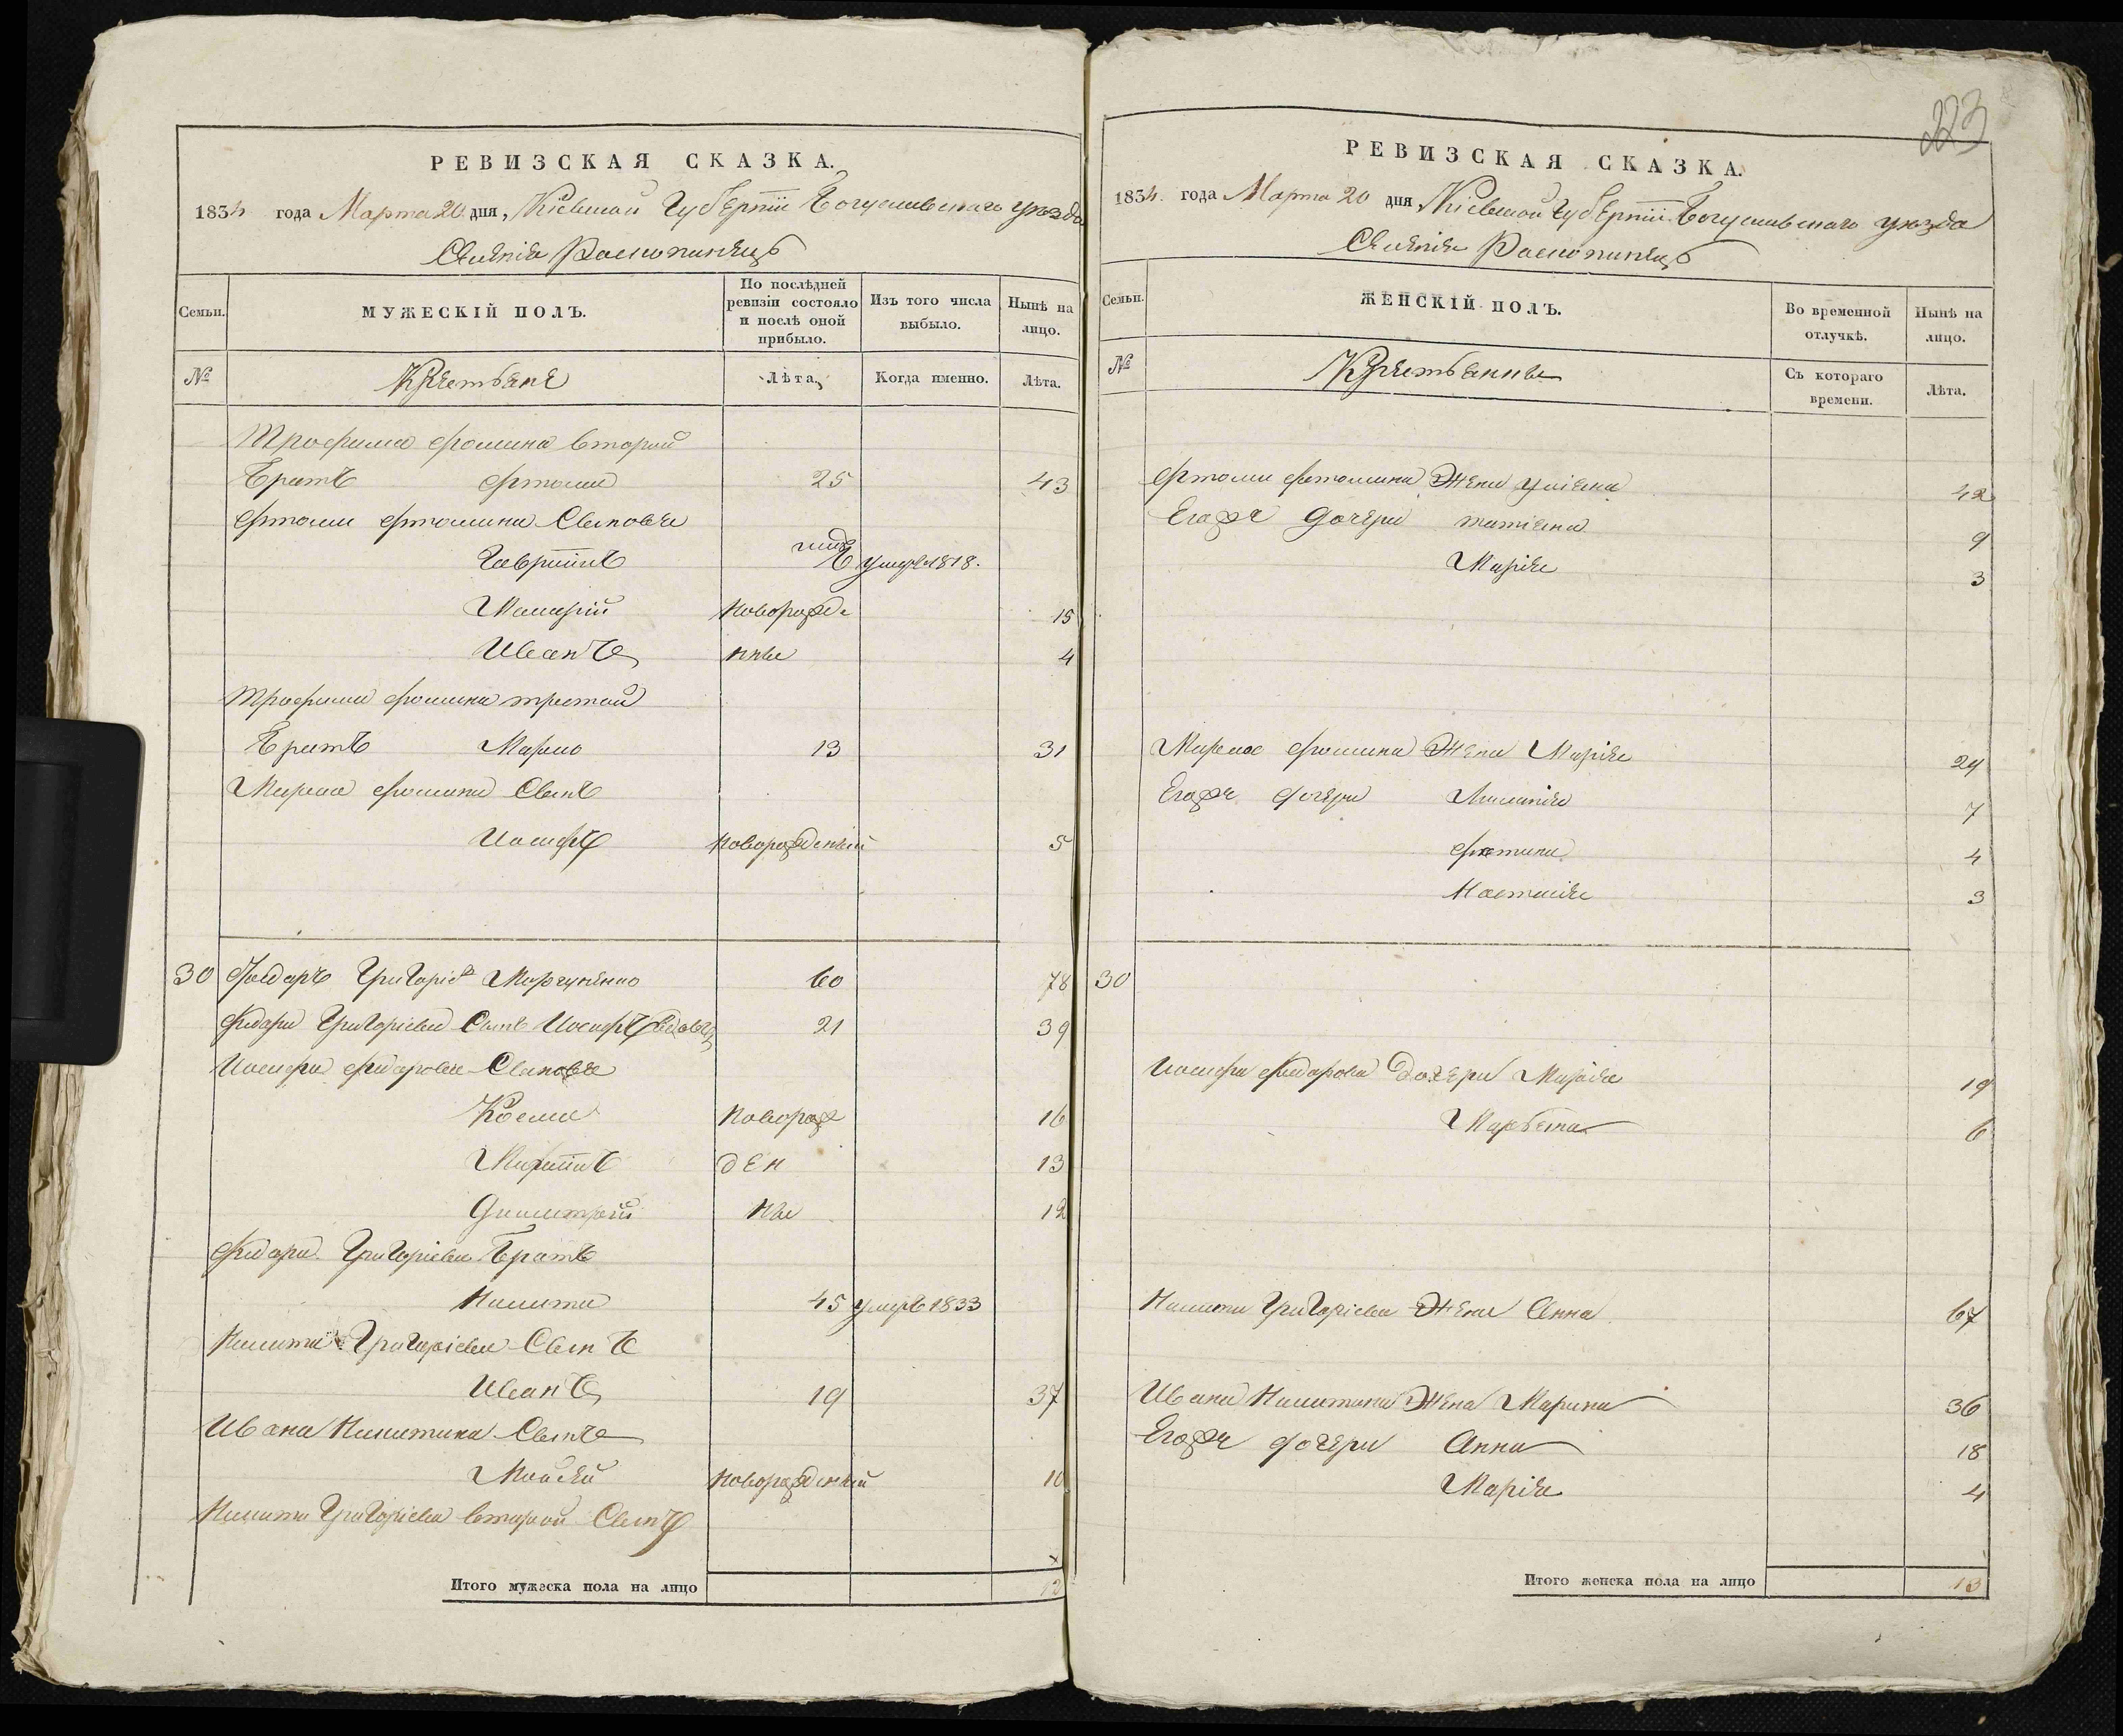 РЕВИЗСКАЯ СКАЗКА.
1834 года Марта 20 дня, Кіевской Губерніи Богуславскаго уѣзда
Селенія Раскопинецъ
Семьи.
МУЖЕСКІЙ ПОЛЪ.
По послѣдней ревизіи состояло и послѣ оной прибыло.
Изъ того числа выбыло.
Нынѣ на лицо.
№
Крестьяне
Лѣта,
Когда именно.
Лѣта.
Трофима Фомина второй
Братъ 25 43
Сыновья
Гавріилъ умеръ 1818.
Макарій новорожде 15
Иванъ нные 4
Трофима Фомина третій
Братъ Марко 13 31
Марка Фомина Сынъ
Иосифъ новорожденный 5
30 Феодоръ Григоріевъ 60 78
Федора Григоріева Сынъ Иосифъ вдовецъ 21 39
Иосифа Федорова Сыновья
Косма новорож 16
ден 13
Димитрій ные 12
Федора Григоріева Братъ
Никита 45 умеръ 1833
Никиты Григоріева Сынъ
Иванъ 19 37
Ивана Никитина Сынъ
Мойсей новорожденный 10
Никиты Григоріева второй Сынъ
Итого мужеска пола на лицо 12
223
РЕВИЗСКАЯ СКАЗКА.
1834. года Марта 20 дня Кіевской Губерніи Богуславскаго уѣзда
Селенія Раскопинецъ
Семьи.
ЖЕНСКІЙ ПОЛЪ.
Во временной отлучкѣ.
Нынѣ на лицо.
№
Крестьянки
Съ котораго времени.
Лѣта.
Жена 42
Егоже дочери Татіана 9
Марія 3
Марка Фомина Жена Марія 29
Егоже дочери 7
4
Настасія 3
30
Иосифа Федорова Дочери Марія 19
6
Никиты Григоріева Жена Анна 67
Ивана Никитина Жена Марина 36
Егоже дочери Анна 18
Марія 4
Итого женска пола на лицо 13